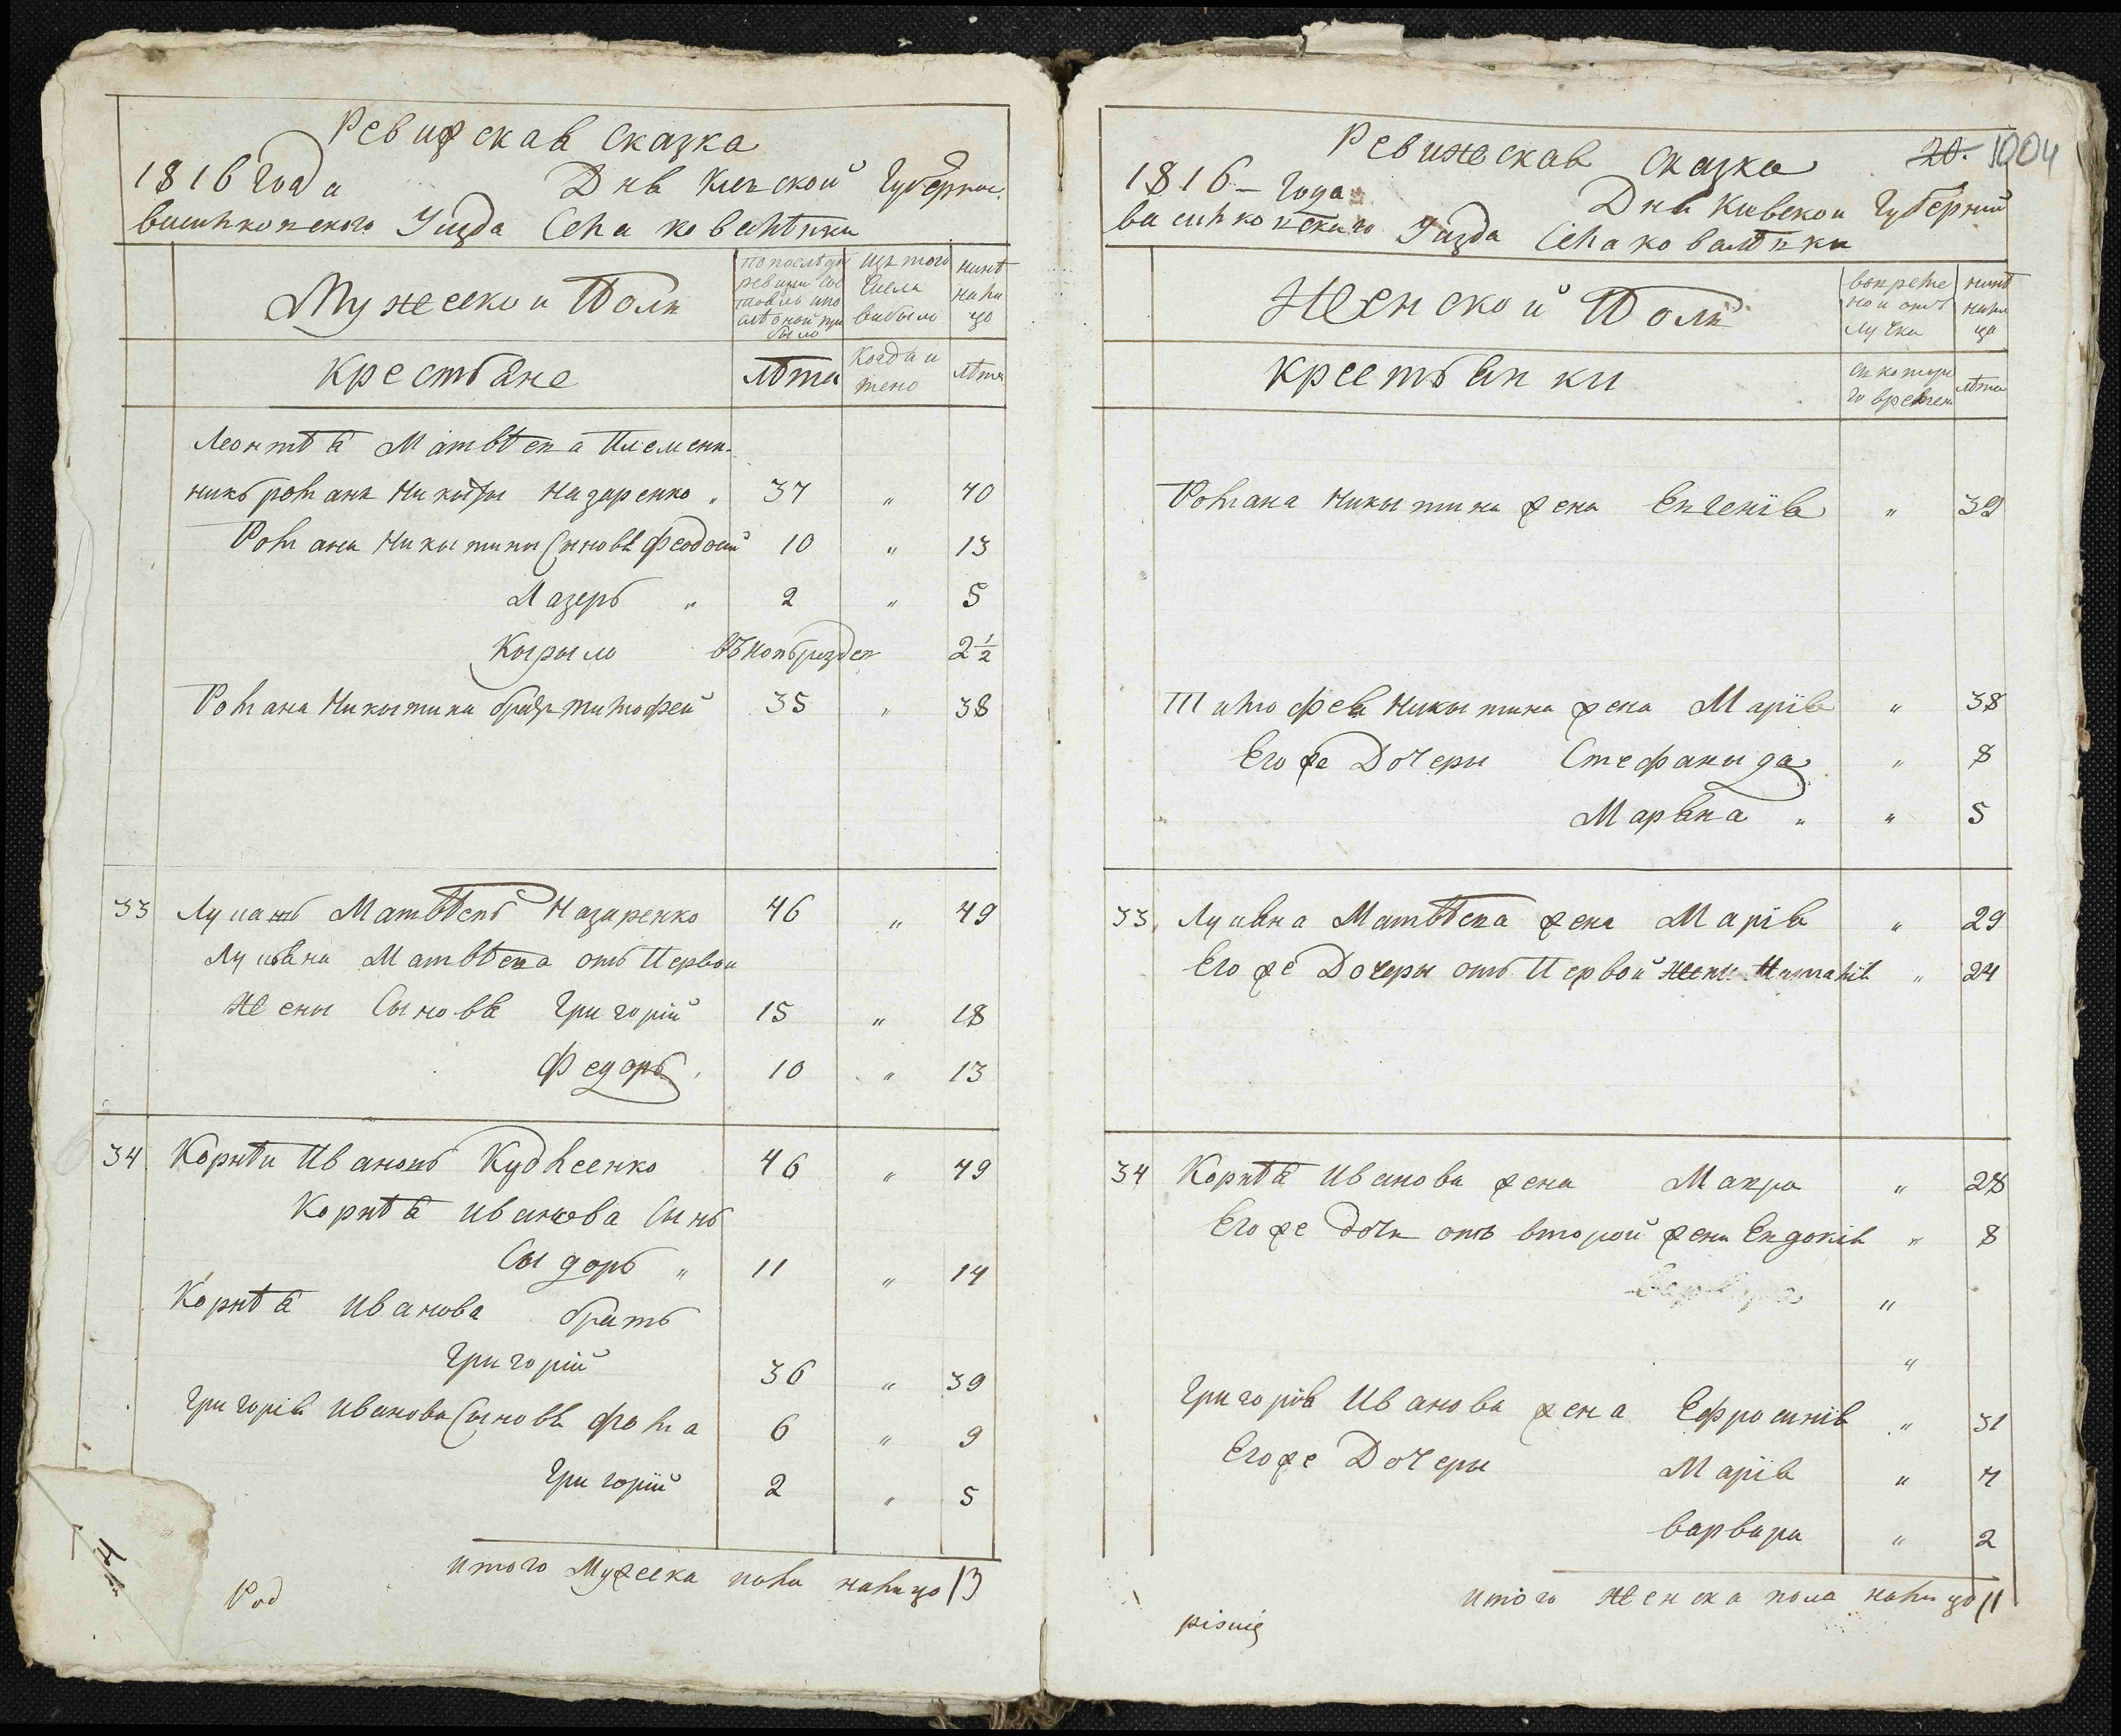 Ревизская сказка
1816 года Дня Киевской Губернии
василковского Уизда Села ковалѣвки
Мужеска и Полъ
по последн ревизии состояло и по оной при было
изъ того числа выбыло
нинѣ на лицо
Крестьяне
лѣта
Когда и мено
лѣта
Леонтѣя Матвѣева Племен-
никъ романъ Никыты Назаренко „ 37 „ 40
Романа Никытины Сыновя Феодосий 10 „ 13
Лазеръ „ 2 „ 5
Кырыло въновъ рожден 2½
Романа Никытина братъ тимофей 35 „ 38
33 Луцянъ Матвѣевъ Назаренко 46 „ 49
Луцяна Матвѣева отъ Первои
жены Сыновя Григорій 15 „ 18
Федоръ 10 „ 13
34 Корнѣи Ивановъ Кудлеенко 46 „ 49
Корнѣя иванова Сынъ
Сыдоръ „ 11 „ 14
Корнѣя иванова братъ
Григорій 36 „ 39
Григорія иванова Сыновя фома 6 „ 9
Григорій 2 „ 5
итого Мужеска пола налицо 13
Род
Ревижская сказка 20. 1004
1816 – года Дня Кивской Губерний
василковскаго Уизда Села ковалѣвки
Женской Полъ
вовреме ной отъ лучки
нинѣ нали цо
крестьянки
съ которо го времен
лѣта
Романа Никытина жена Евгенія „ 39
Тимофея Никытина жена Марія „ 38
Его же Дочеры Стефаныда „ 8
Маряна „ „ 5
33. Луцяна Матвѣева жена Марія „ 29
Его же Дочеры отъ Первой жены Наталія „ 24
34 Корнѣя Иванова жена Мавра „ 28
Его же дочъ отъ второй жени Евдокія „ 8
Варвара „
„
Григорія Иванова жена Ефросинія „ 31
Его же Дочеры Марія „ 7
варвара „ 2
итого женска пола налицо 11
pisuią